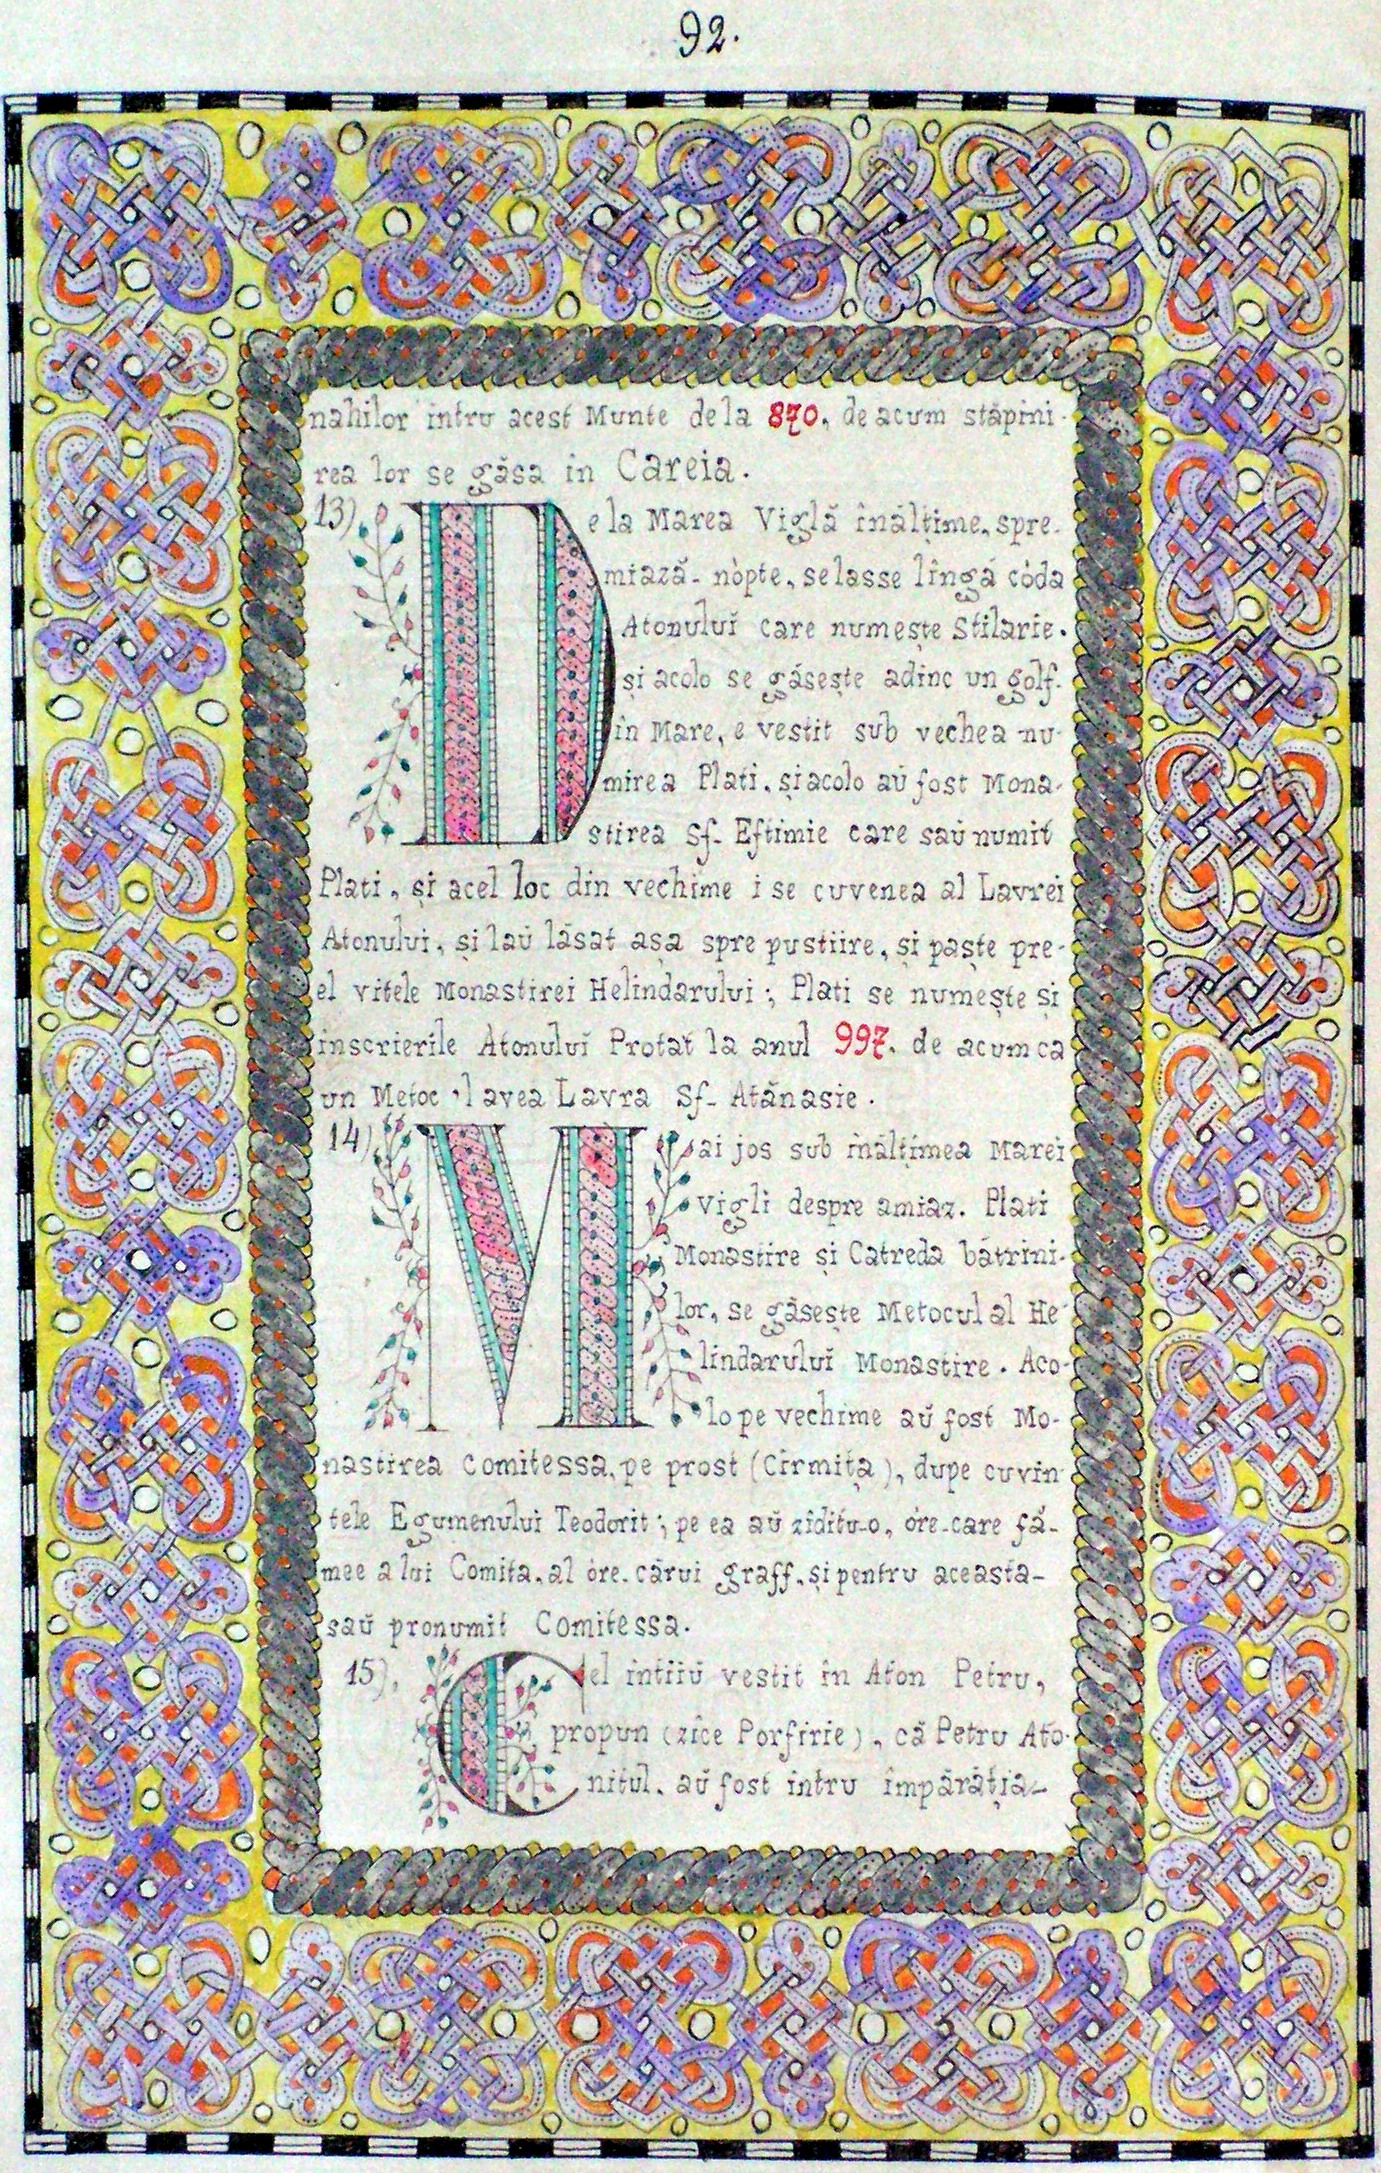 92.
nahilor intru acest Munte dela 870. de acum stăpini-
rea lor se găsa in Careia.
13). De la Marea Viglă înălțime. spre-
miază-nópte. se lasse lîngă códa
Atonuluĭ care numește Stilarie.
și acolo se găsește adinc un golf.
în Mare, e vestit sub vechea nu-
mirea Plati. și acolo aŭ fost Mona-
stirea Sf. Eftimie care saŭ numit
Plati, și acel loc din vechime i se cuvenea al Lavrei
Atonului, și laŭ lăsat așa spre pustiire, și paște pre-
el vitele Monastirei Helindaruluĭ; Plati se numește și
inscrierile Atonuluĭ Protat la anul 997. de acum ca
un Metoc 'l avea Lavra Sf- Atănasie.
14). Mai jos sub înălțimea Marei
Vigli despre amiaz. Plati
Monastire și Catreda bătrini-
lor, se găsește Metocul al He-
lindaruluĭ Monastire. Aco-
lo pe vechime aŭ fost Mo-
nastirea Comitessa, pe prost (Cirmița), dupe cuvin-
tele Egumenului Teodorit; pe ea aŭ ziditu-o, óre-care fă-
mee a lui Comita. al óre-cărui graff. și pentru aceasta-
saŭ pronumit Comitessa.
15). Cel intiiŭ vestit în Aton Petru,
propun (zice Porfirie), că Petru Ato-
nitul. aŭ fost intru împărăția-